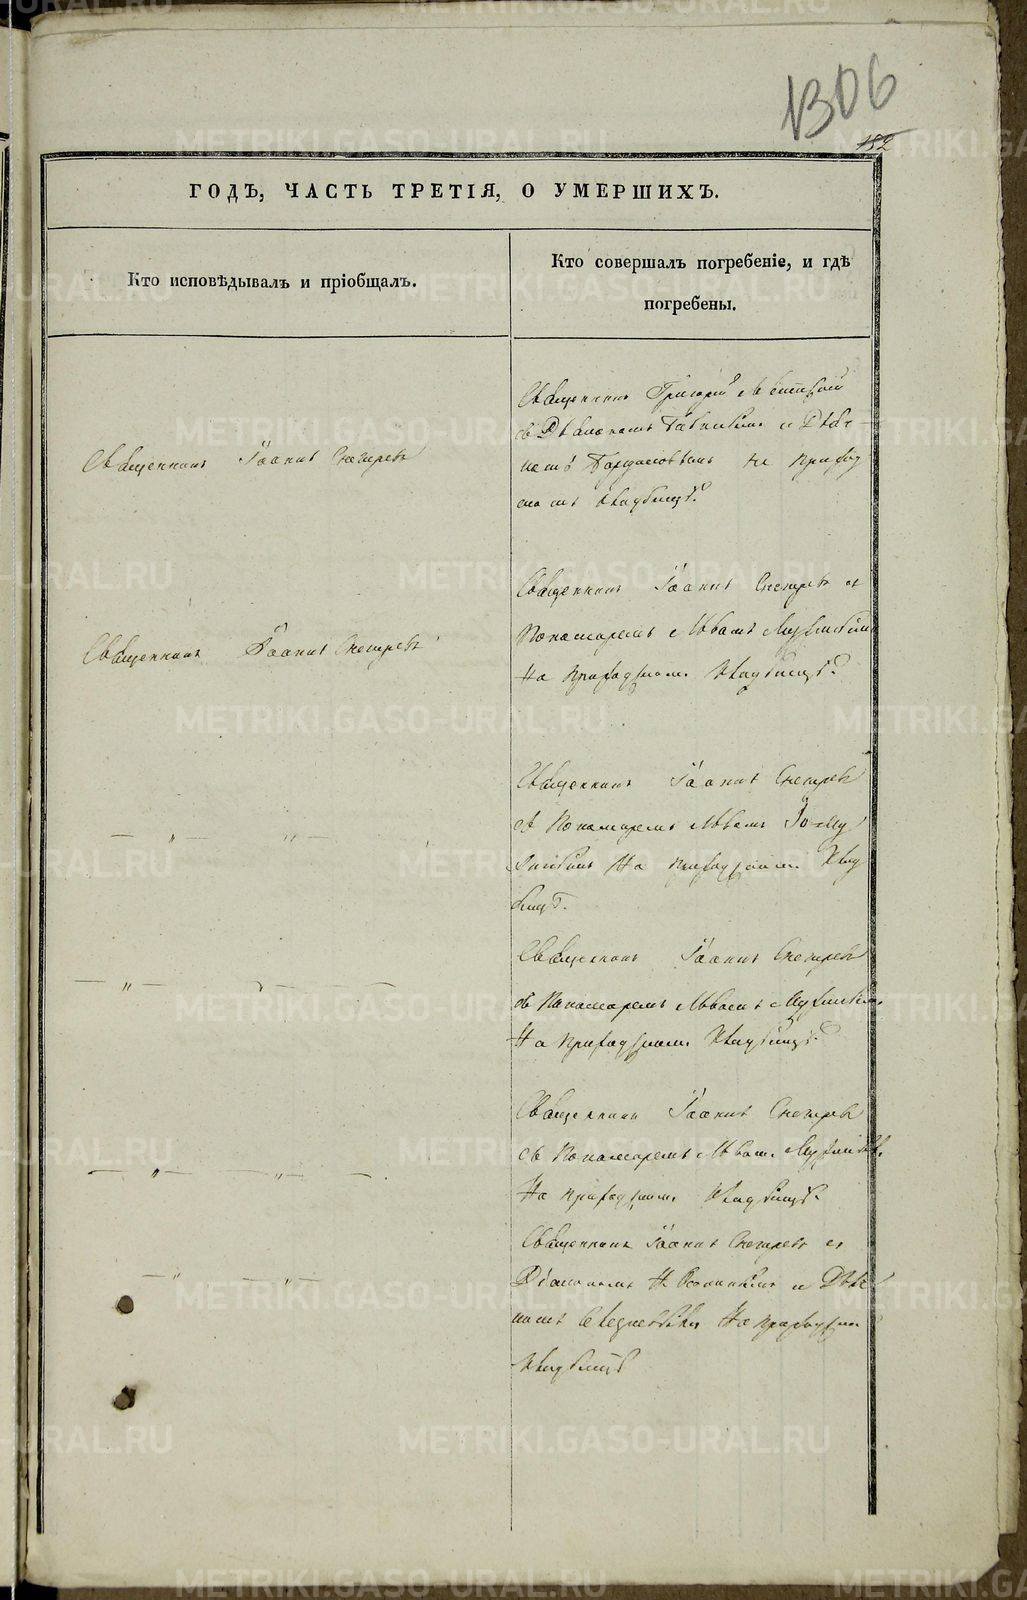 1306
182
ГОДЪ, ЧАСТЬ ТРЕТІЯ, О УМЕРШИХЪ.
Кто исповѣдывалъ и пріобщалъ.
Кто совершалъ погребеніе, и гдѣ
погребены.
Священникъ Іоаннъ Снегиревъ
Священникъ Григорій
съ Діакономъ и Дьяч-
комъ на приход
скомъ кладбищѣ.
Священникъ Іоаннъ Снегиревъ
Священникъ Іоаннъ Снегиревъ съ
Пономаремъ Львомъ
На приходскомъ кладбищѣ.
— " — " —
Священникъ Іоаннъ Снегиревъ
съ Пономаремъ Львомъ
На приходскомъ клад
бищѣ.
— " — " —
Священникъ Іоаннъ Снегиревъ
съ Пономаремъ Львомъ
На приходскомъ кладбищѣ.
— " — " —
Священникъ Іоаннъ Снегиревъ
съ Пономаремъ Львомъ
На приходскомъ кладбищѣ.
— " — " —
Священникъ Іоаннъ Снегиревъ съ
Діакономъ и Дьяч
комъ На приходскомъ
кладбищѣ
METRIKI.GASO-URAL.RU